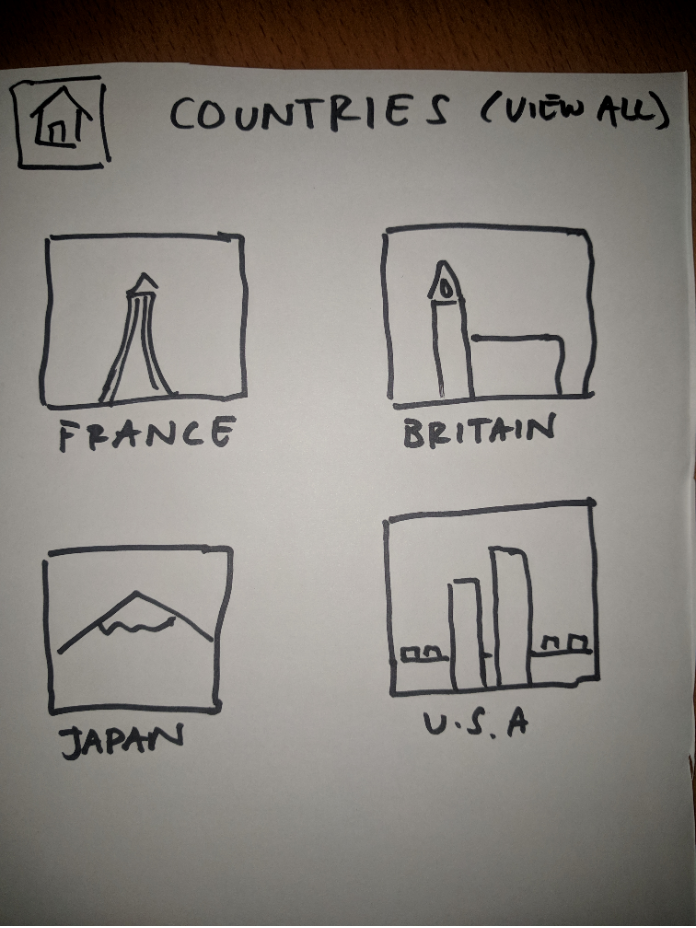 COUNTRIES (VIEW ALL)
FRANCE
BRITAIN
JAPAN
U.S.A